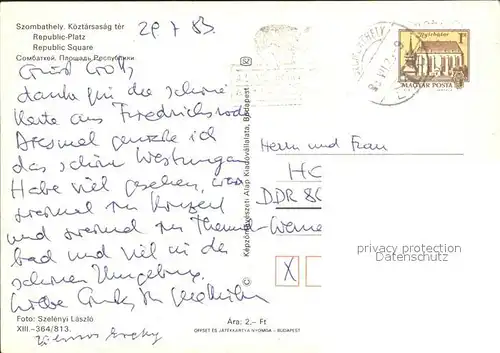 Szombathely. Köztársaság tér
Republic-Platz
Republic Square
Сомбатхей. Площадь Республики
29 7 83.
Grüß Gott
danke für die schöne
Karte aus Friedrichroda
Diesmal genieße ich
das schöne Westungarn
Habe viel gesehen, war
zweimal im Konzert
und zweimal im Thermal-
bad und viel in der
schönen Umgebung.
Liebe Grüße
Foto: Szelényi László
XIII.-364/813.
Képzőművészeti Alap Kiadóvállalata, Budapest
Ára: 2,- Ft
OFFSET ÉS JÁTÉKKÁRTYA NYOMDA - BUDAPEST
SZOMBATHELY
Nyírbátor
1 Ft
MAGYAR POSTA
Herrn und Frau
HC
DDR 80
Werne
privacy protection
X